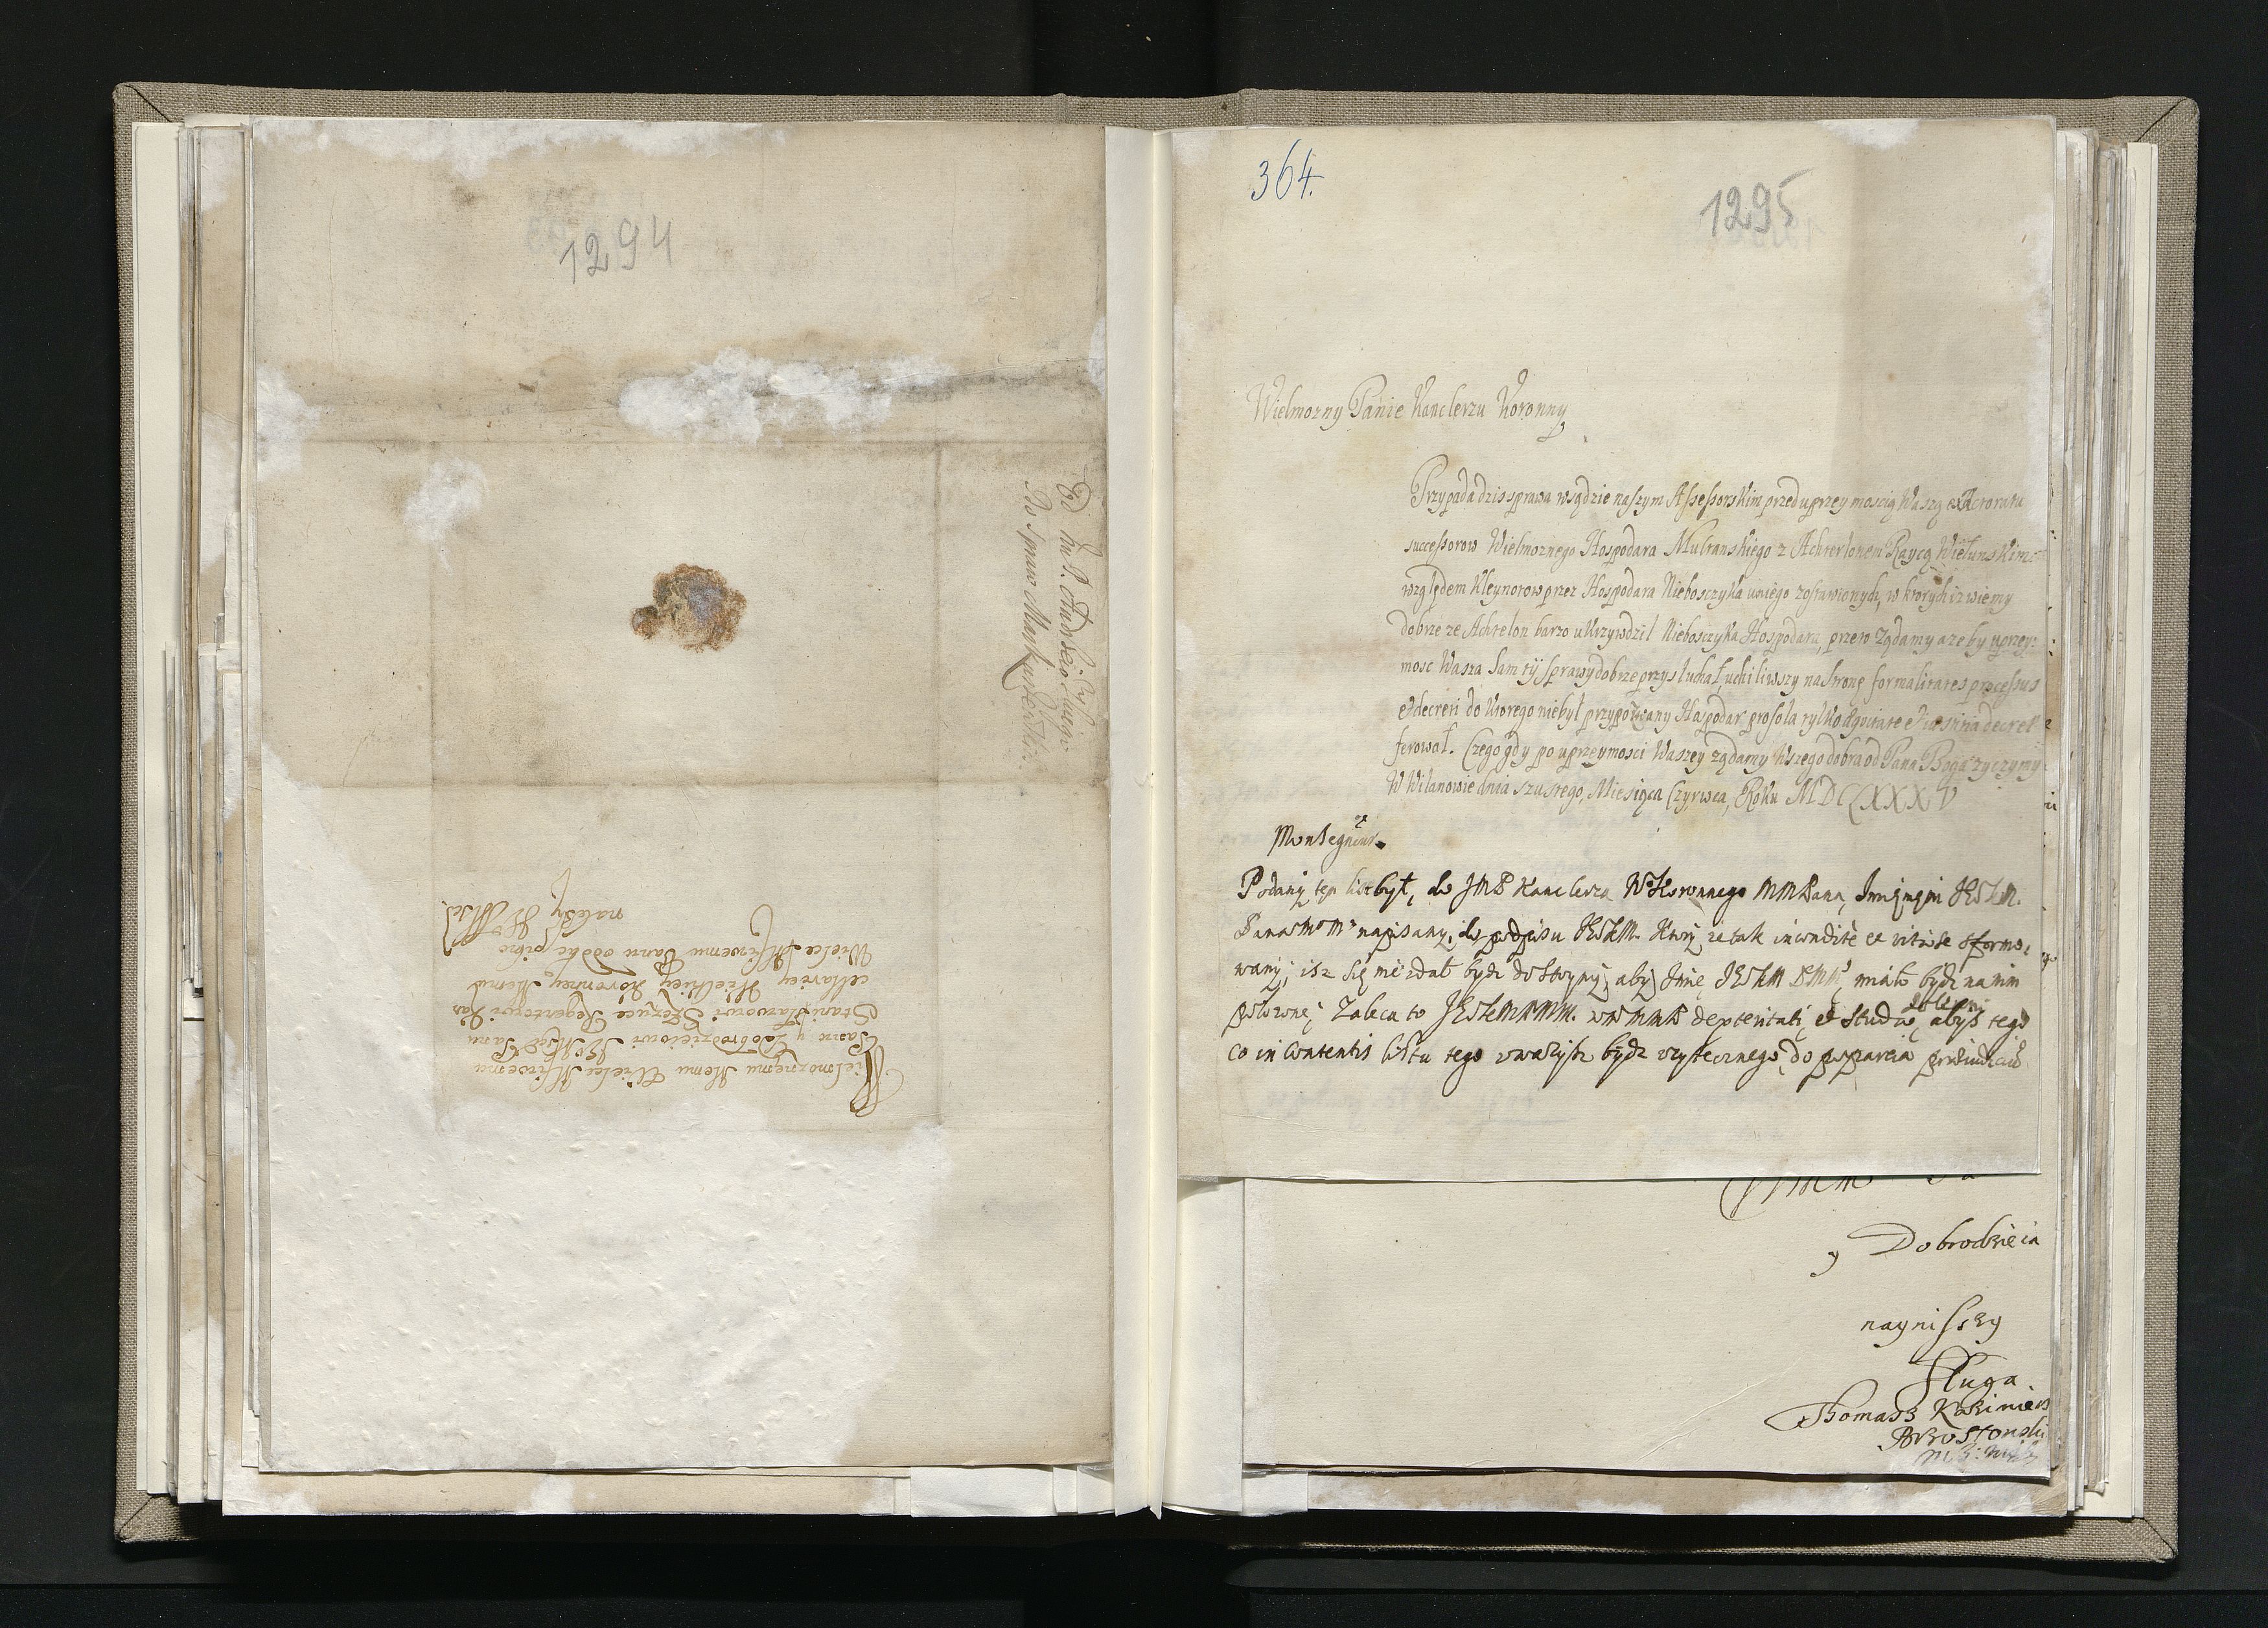 1294
Od Im P.
Do spraw
Wielmoznemu Memu Wielce Mciwemu
Panu y Dobrodzieiowi Je° Mści Panu
Stanisławowi Szczuce Regentowi Kan
cellariey Wielkiey Koronney Memu
Wielce Mciwemu Panu oddac pilno
należy
364.
1295
Wielmozny Panie Kanclerzu Koronny,
Przypada dzis sprawa w sądzie naszym Assessorskim przed uprzeymoscią Waszą ex Actoratu
successorow Wielmoznego Hospodara Multanskiego z Achtertonem Raycą Wieluns kim
względem Kleynotow przez Hospodara Nieboszczyka u niego zostawionych, w ktorych iz wiemy
dobrze ze Achtelon barzo ukrzywdzil Nieboszczyka Hospodara, przeto Ządamy azeby uprzey:
mosc Wasza Sam tÿ sprawy dobrze przysłuchał, uchiliwszy na stronę formalitates processus
et decreti do ktorego niebył przypozwany Hospodar pro sola tylko æquitate et iustitia decret
ferował. Czego gdy po uprzeymosci Waszey ządamy Wszego dobra od Pana Boga zyczymy
W Wilanowie dnia szustego, Miesiąca Czyrwca, Roku MDCLXXXV
Podany ten list był, do JMP Kanclerza W° Koronnego MMPana, Imięniem JKSKM.
Pana M° M° napisany, do podpisu JKSKM. Ktory ze tak incondite et vitiose sformo,
wany; isz się nie zdał bydz dostoyny, aby Imię JKSKM PMM°, miało bydz na nim
połozone; Zaleca to JKSKM wMMP dexteritati, et studio, abyś tego
co in contentis listu tego uwazysz bydz uzytecznego, do poparcia
y Dobrodzieia
naynisszy
Sługa
Thomasz